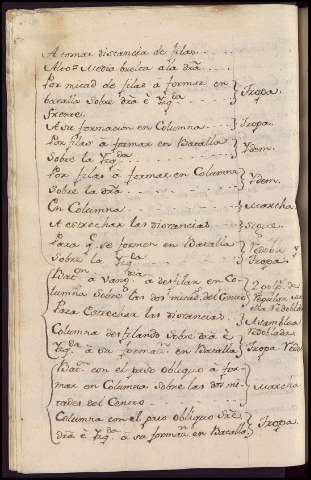 A tomar distancia de filas . . . .
Alto: Media buelta a la dra. . . . .
Por mitad de filas a formar en
batalla sobre dra. è Yzq.da . . . . } Tropa.
frente.
A su formacion en Columna. . . . } Tropa.
Por filas à formar en Batalla
sobre la Yzq.da . . . . } Ydem.
Por filas à formar en Columna
sobre la dra. . . . . } Ydem.
En Columna . . . . } Marcha
A estrechar las distancias . . . . } Sigue.
Para q.e se formen en Batalla
sobre la Yzq.da . . . . } Redoble y Tropa.
à Vang.a à desfilar en Co-
lumna sobre las dos mitad.s del Centro
Para Estrechar las distancias. . . } Asamblea
Columna desfilando sobre dra. è
Yzq.da à su formac.n en Batalla } Tropa
Bat.n con el paso obliquo à for-
mar en Columna sobre las dos mi-
tades del Centro. . . . } Marcha
Columna con el paso obliquo Sre.
dra. è Yzq.da à su formac.n en Batalla. } Tropa.